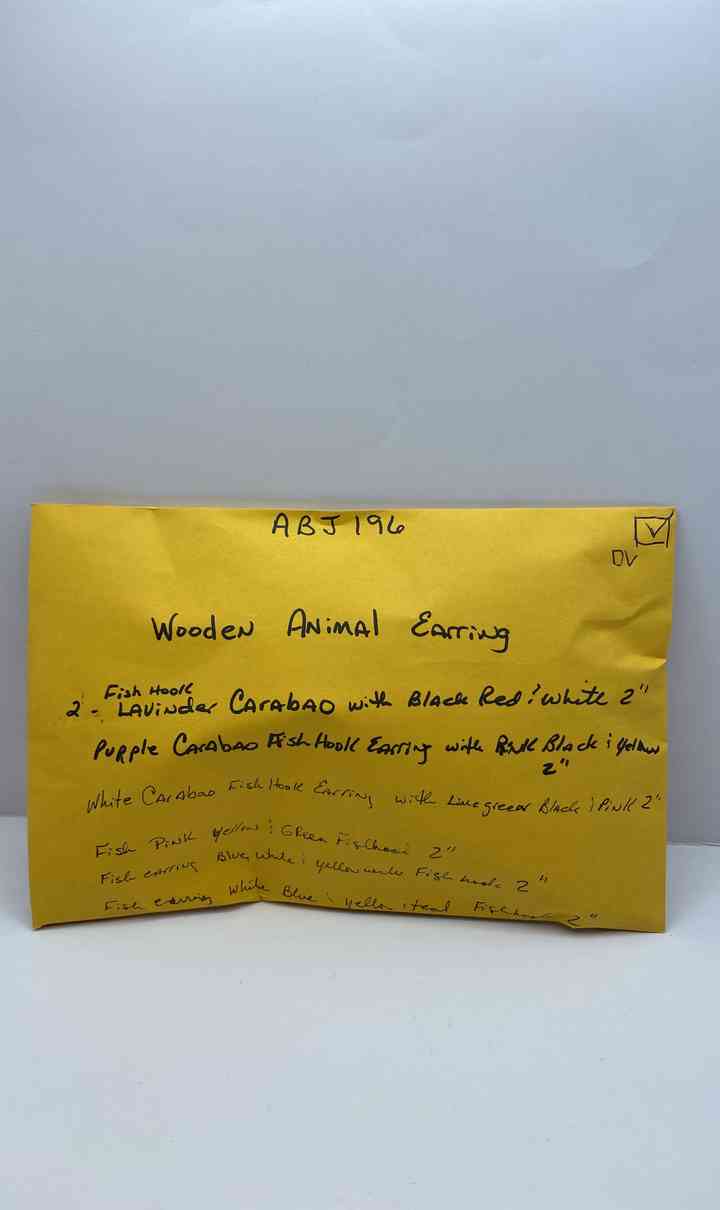 ABJ 196
DV
Wooden Animal Earring
Fish Hook
2 - Lavinder Carabao with Black Red & White 2"
Purple Carabao Fish Hook Earring with Pink Black & Yellow
2"
White Carabao Fish Hook Earring with Limegreen Black & Pink 2"
Fish Pink Yellow & Green Fishhook 2"
Fish earring Blue, White & yellow Fish hook 2"
Fish earring White Blue & yellow Fishhook 2"